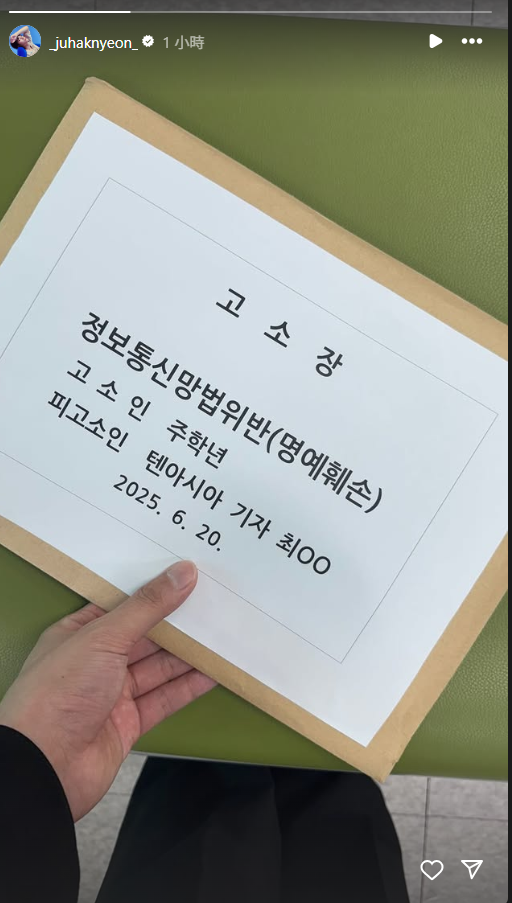 _juhaknyeon_ 1 小時
고 소 장
정보통신망법위반(명예훼손)
고 소 인 주학년
피고소인 텐아시아 기자 최OO
2025. 6. 20.